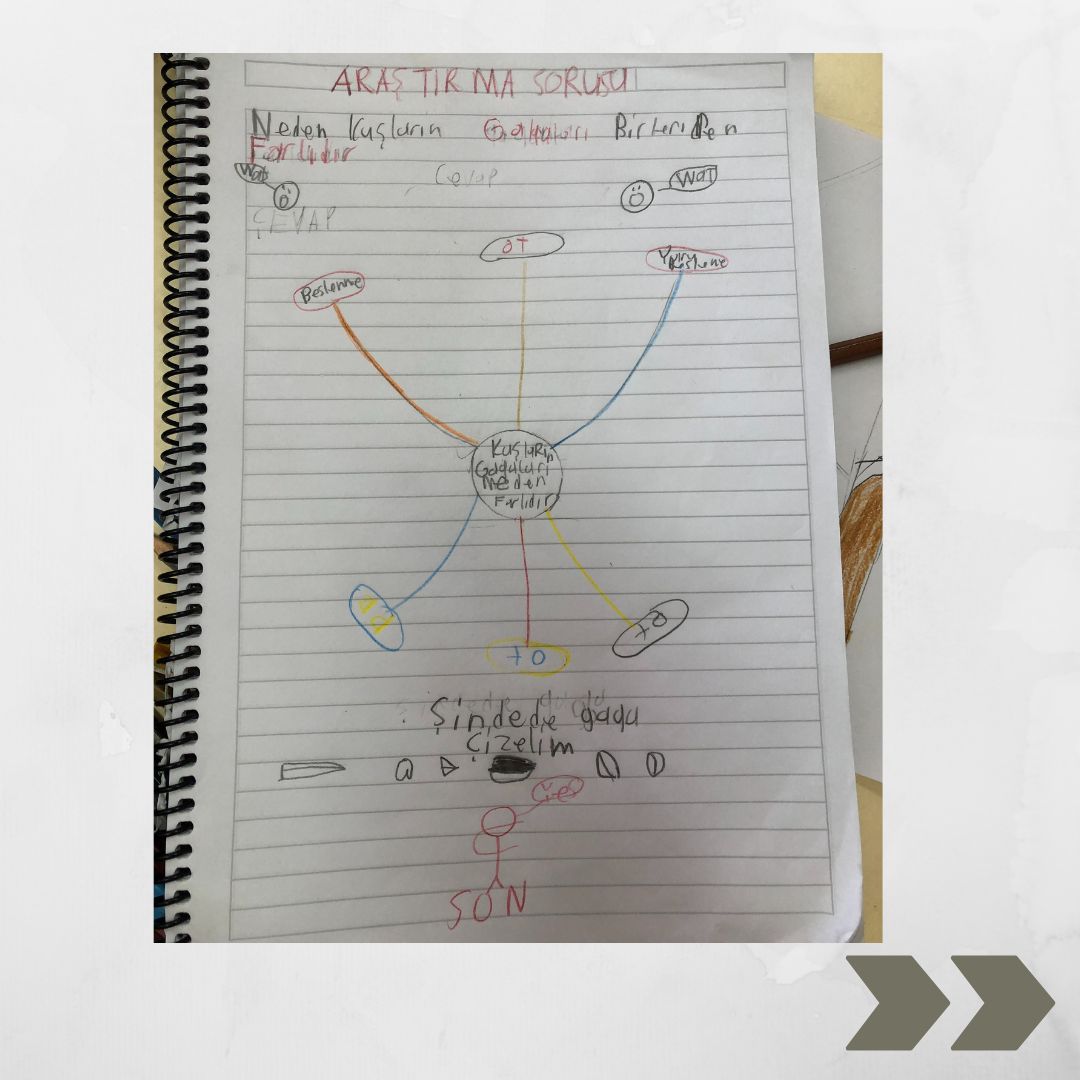 ARAŞTIRMA SORUSU
Neden Kuşların Gagaları Birbirinden
Farlıdır
Wat
Cevap
Wat
ÇEVAP
OT
Beslenme
Kuşların
Gagaları
Neden
Farlıdır
OT
OT
Şindede gaga
Çizelim
SON